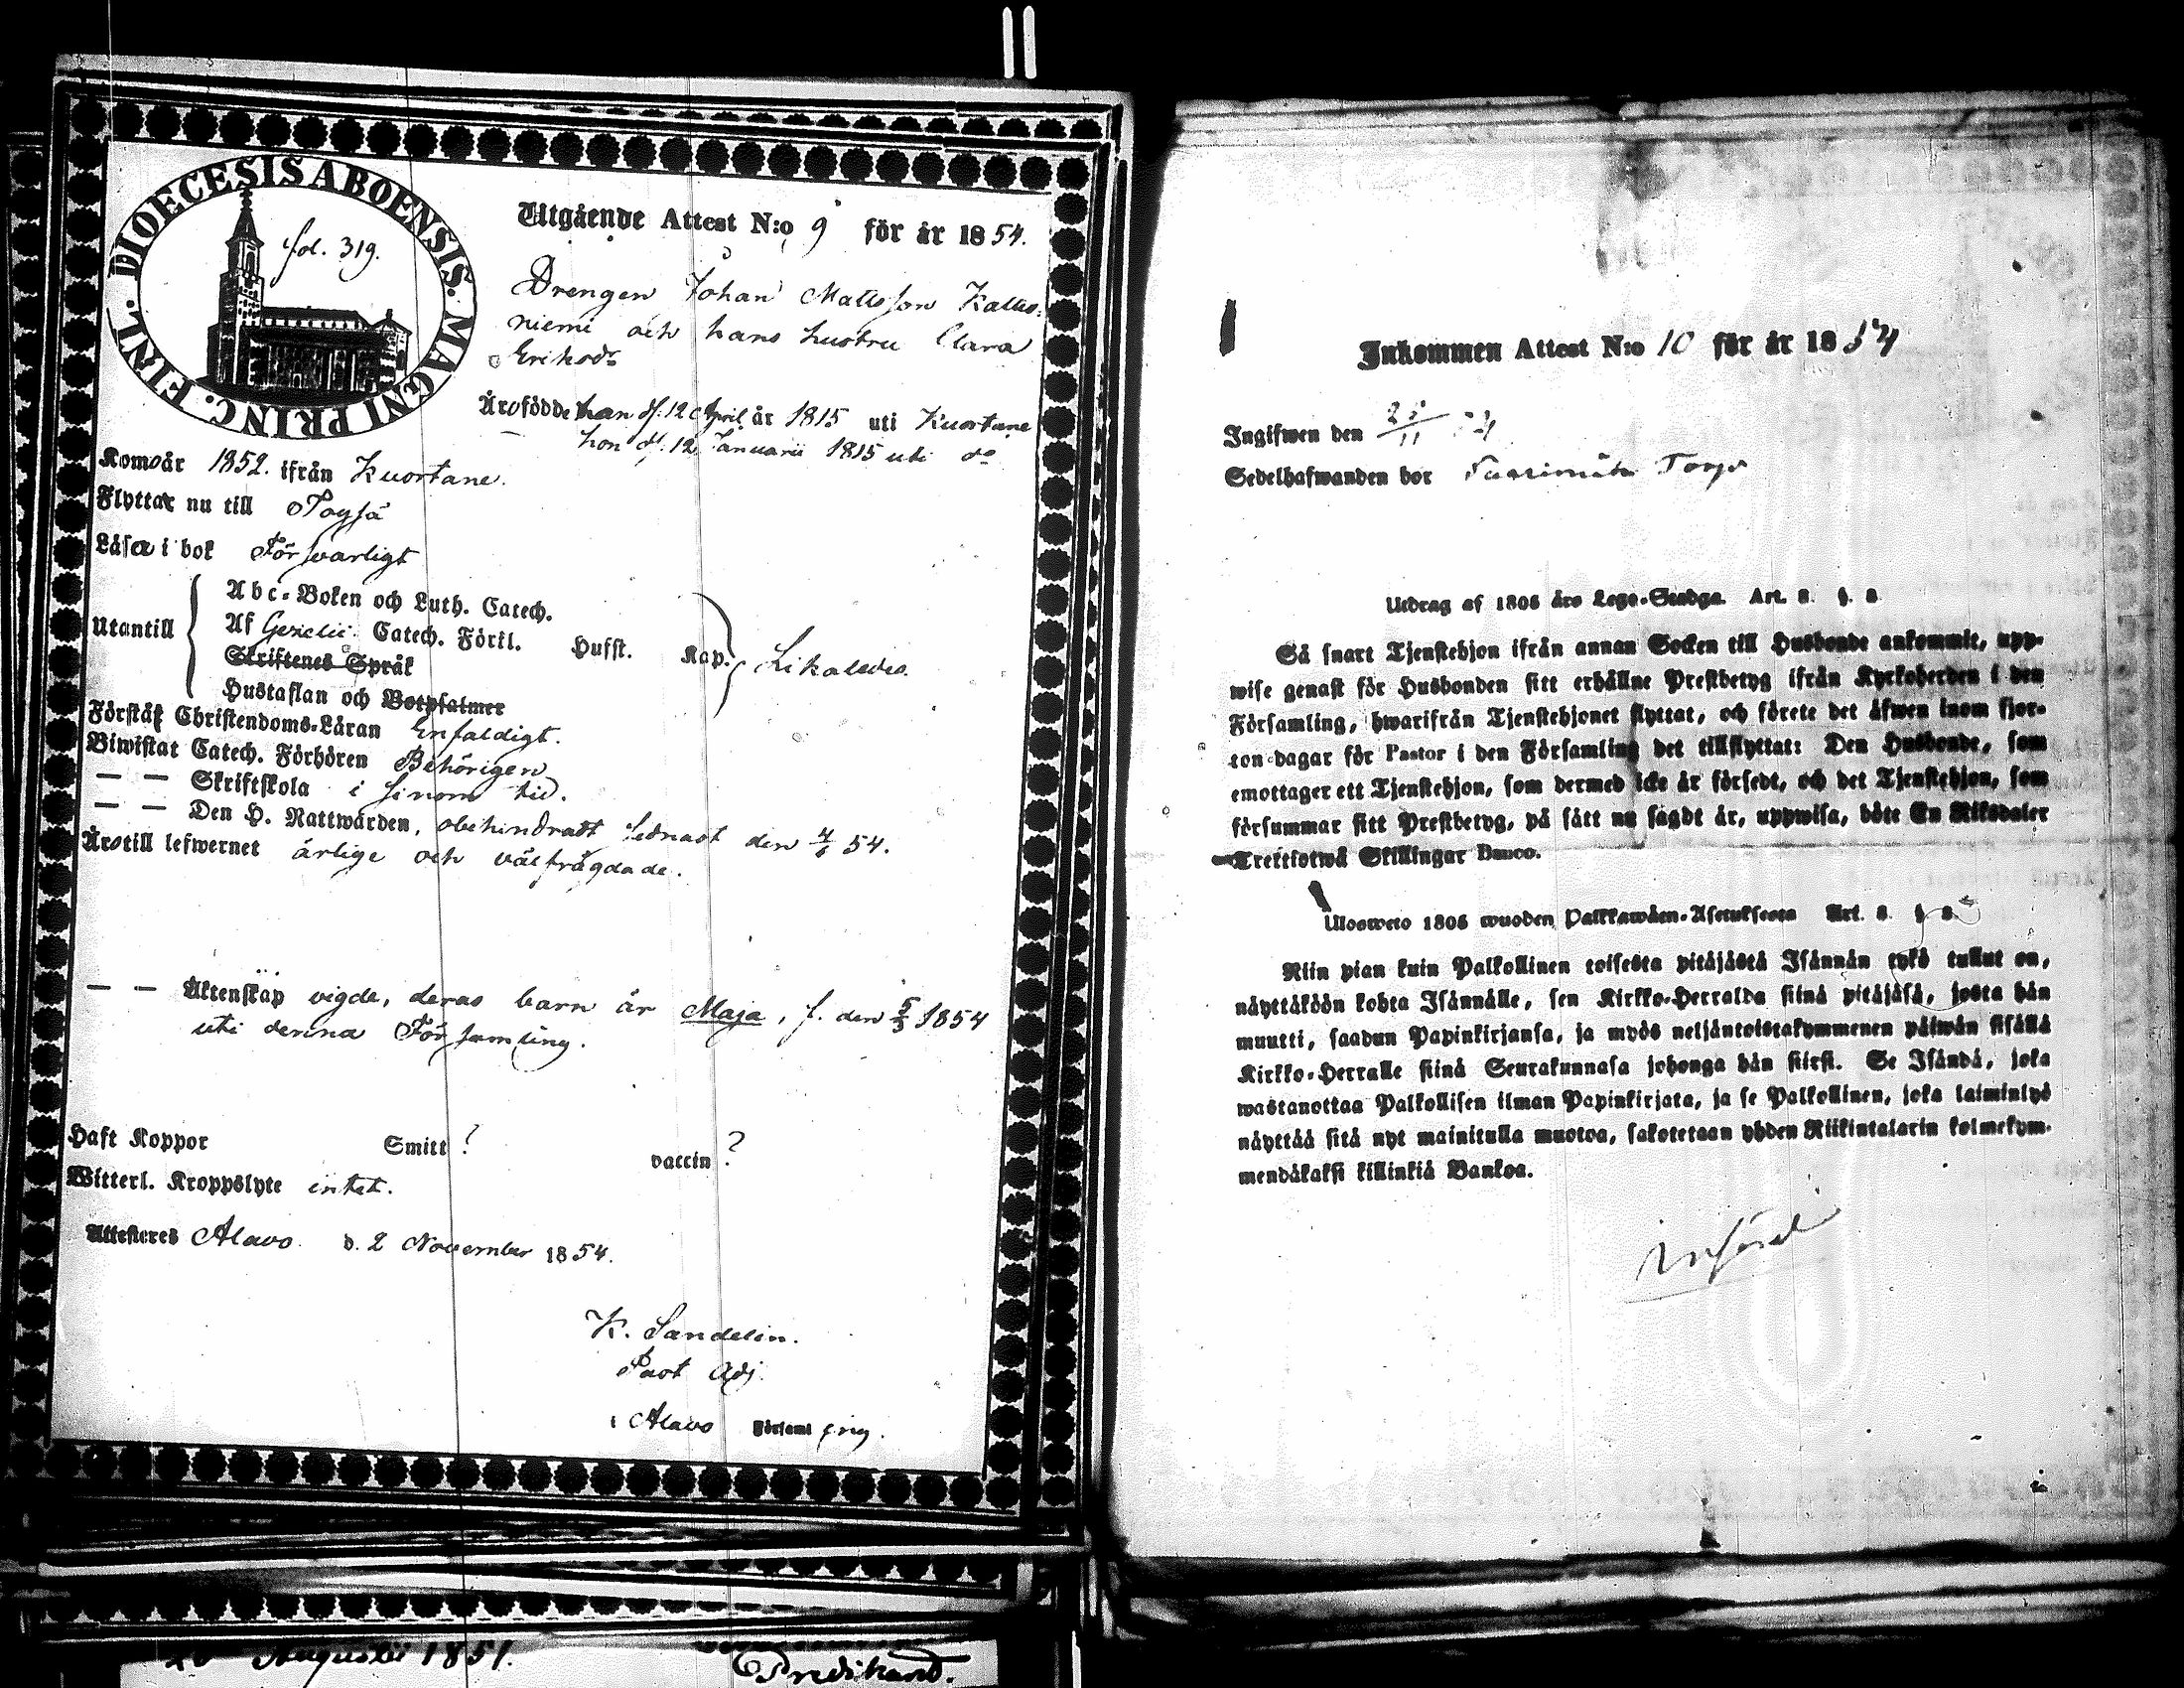 DIOECESIS ABOENSIS. MAGNI PRINC. FINL.
fol. 319.
Utgående Attest N:o 9 för år 1854.
Drengen Johan Mattsson Kattes-
niemi och hans hustru Clara
Eriksdr
Äro födde han d. 12 April år 1815 uti Kuortane
hon d. 12 Januarii 1815 uti do
Kom år 1852. ifrån Kuortane.
Flyttar nu till Töysä
Läsa i bok Försvarligt
Utantill
Abc-Boken och Luth. Catech.
Af Gezelii Catech. Förkl. Husst. Kap. Likaledes.
Skriftenes Språk
Hustaflan och Botpsalmer
Förstår Christendoms-Läran Enfaldigt.
Biwistat Catech. Förhören Behörigen
— — Skriftskola i sinom tid.
— — Den H. Nattwarden, obehindradt sednast den 54.
Äro till lefwernet ärlige och välfrägdade.
— — Äktenskap vigde, deras barn är Maja, f. den 5/3 1854
uti denna Församling.
Haft Koppor Smitt ? vaccin ?
Witterl. Kroppslyte intet.
Attesteres Alavo d. 2 November 1854.
K. Sandelin.
Past Adj.
i Alavo Församling.
Augustii 1851.
Predikant.
Inkommen Attest N:o 10 för år 1854
Ingifwen den
Sedelhafwanden bor
Utdrag af 1805 års Lego-Stadga. Art. 8. §. 8
Så snart Tjenstehjon ifrån annan Socken till Husbonde ankommit, upp-
wise genast för Husbonden sitt erhållne Prestbetyg ifrån Kyrkoherden i den
Församling, hwarifrån Tjenstehjonet flyttat, och förete det äfwen inom fjor-
ton dagar för Pastor i den Församling det tillflyttat: Den Husbonde, som
emottager ett Tjenstehjon, som dermed icke är försedt, och det Tjenstehjon, som
försummar sitt Prestbetyg, på sätt nu sagdt är, uppwisa, böte En Riksdaler
Trettiotwå Skillingar Banco.
Ulosweto 1805 wuoden Palkkawäen-Asetuksesta Art. 8. § 8.
Niin pian kuin Palkollinen toisesta pitäjästä Isännän tykö tullut on,
näyttäköön kohta Isännälle, sen Kirkko-Herralda siinä pitäjäsä, josta hän
muutti, saadun Papinkirjansa, ja myös neljäntoistakymmenen päiwän sisällä
Kirkko-Herralle siinä Seurakunnasa johonga hän siirsi. Se Isändä, joka
wastanottaa Palkollisen ilman Papinkirjata, ja se Palkollinen, joka laiminlyö
näyttää sitä nyt mainitulla muotoa, sakotetaan yhden Riikintalarin kolmekym-
mendäkaksi killinkiä Bankoa.
Införd